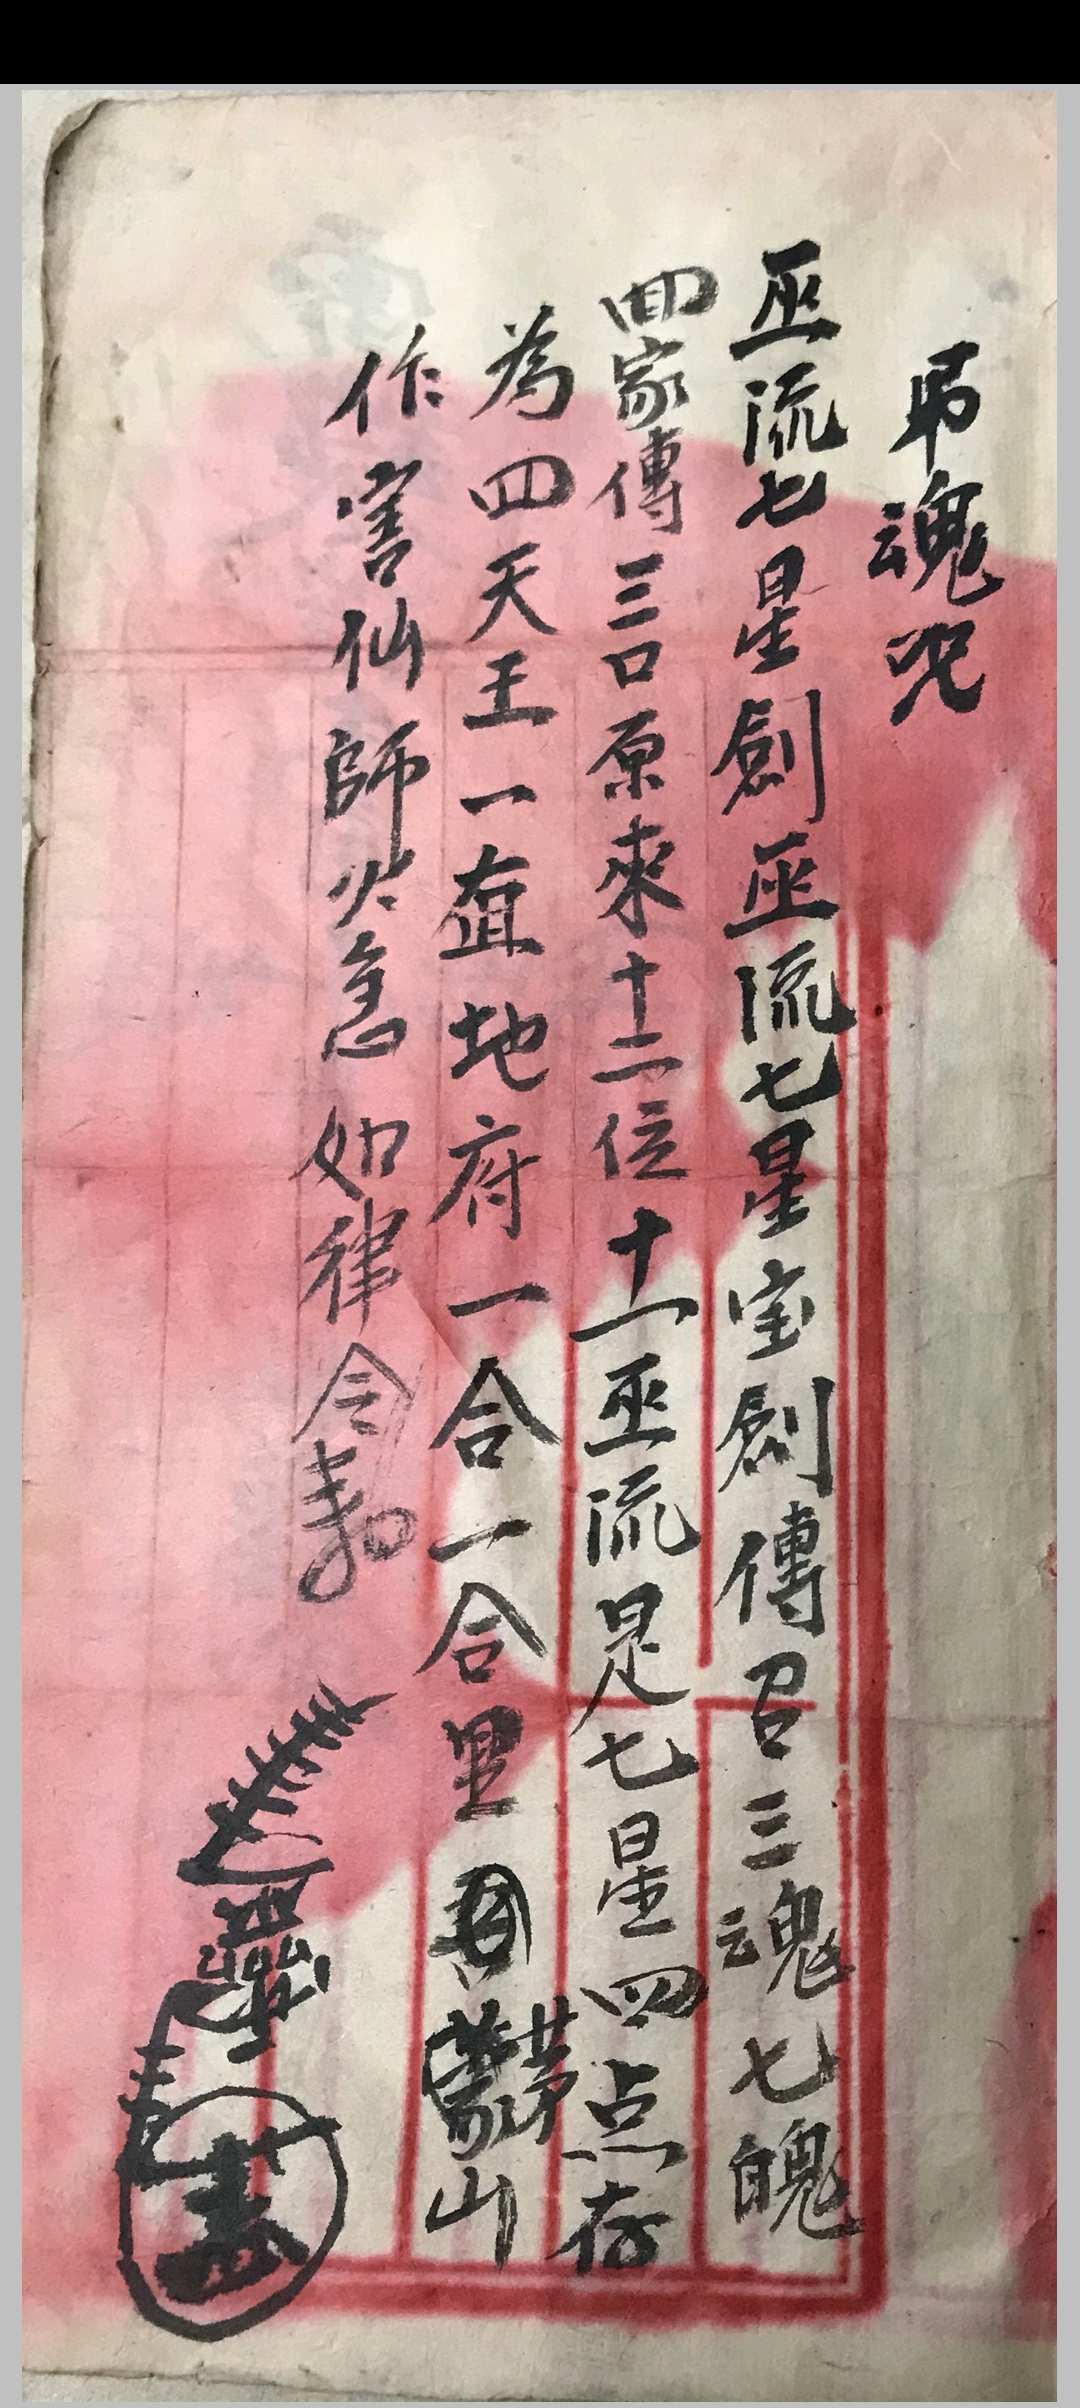 吊魂咒
巫流七星劍巫流七星宝劍傳召三魂七魄
四家傳三口原來十二位十一巫流是七星四点存
為四天王一直地府一合一合里茅山
作害仙師火急如律令勅